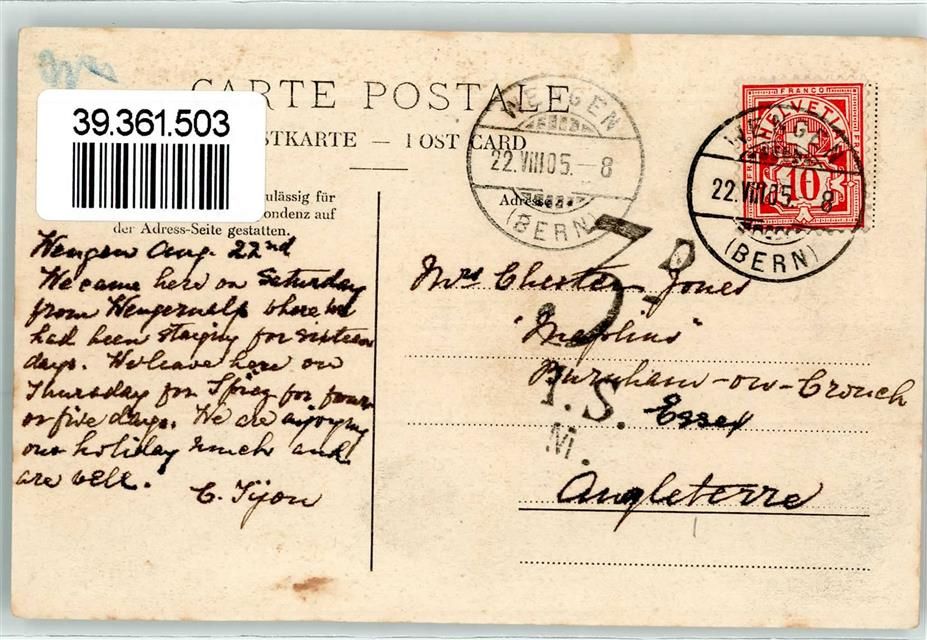 CARTE POSTALE
39.361.503
STKARTE — POST CARD
ulässig für
ondenz auf
der Adress-Seite gestatten.
Adresse
WENGEN
22.VIII.05.-8
(BERN)
FRANCO
HELVETIA
10
WENGEN
22.VIII.05. 8
(BERN)
Wengen Aug. 22nd
We came here on Saturday
from Wengernalp where we
had been staying for sixteen
days. We leave here on
Thursday for Spiez for four
or five days. We are enjoying
our holiday much and
are well.
C. Tijou
Mrs Chester Jones
"Maplins"
Burnham-on-Crouch
Essex
Angleterre
D.
I.S.
M.